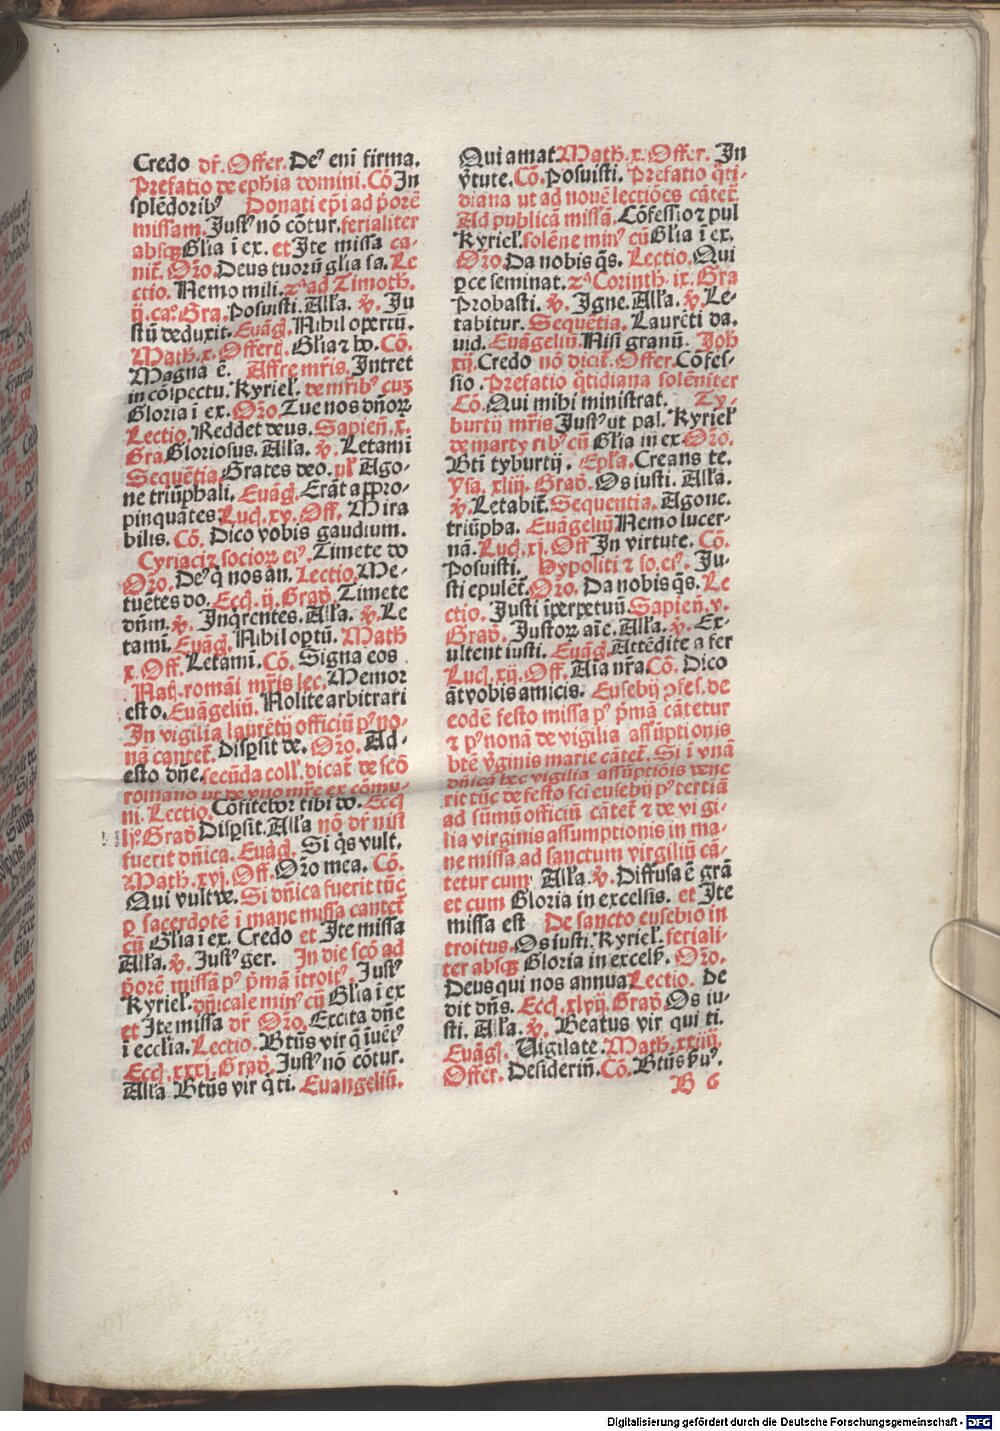 Credo dr̄. Offer. Deꝰ eni firma.
Prefatio de ephia domini. Cō In
splēdoribꝰ Donati ep̄i ad p̄orē
missam. Justꝰ nō cōtur. ferialiter
absqꝫ Glia ī ex. et Ite missa ca-
nit̄. Oro. Deus tuorū glīa sa. Le
ctio. Nemo mili. 2ª ad Timoth.
ij. caº. Gra. Posuisti. Alla. ꝟ. Ju
stū deduxit. Euāḡ. Nihil opertū.
Math. x. Offertū. Glia ⁊ ho. Cō.
Magna ē. Affre mr̄is. Intret
in cōspectu. Kyriel. de mr̄ibꝰ cuꝫ
Gloria ī ex. Oro. Tue nos dn̄oꝝ
Lectio. Reddet deus. Sapien̄. x.
Gra Gloriosus. Alla. ꝟ. Letami
Sequētia. Grates deo. vl Ago-
ne triūphali. Euāḡ. Erāt appro-
pinquātes Luc̄. xv. Off. Mira
bilis. Cō. Dico vobis gaudium.
Cyriaci ⁊ socioꝝ eiꝰ. Timete do
Oro. Deꝰ q̄ nos an̄. Lectio. Me-
tuētes do. Eccī. ij. Grad. Timete
dn̄m. ꝟ. Inq̄rentes. Alla. ꝟ. Le
tami. Euāḡ. Nihil op̄tū. Math
x. Off. Letami. Cō. Signa eos
Natī. romāi mr̄is lec. Memor
esto. Euāgeliū. Nolite arbitrari
In vigilia laurētij officiū pꝰ no-
nā cantet̄. Dispsit de. Oro. Ad-
esto dn̄e. secūda coll. dicat̄ de scō
romano ut de vno mr̄e ex cōmu-
ni. Lectio. Cōfitebor tibi do. Eccī
lj. Grad Dispsit. Alla nō dr̄ nisi
fuerit dn̄ica. Euāḡ. Si q̄s vult.
Math. xvj. Off. Oro mea. Cō.
Qui vult ve. Si dn̄ica fuerit tūc
ꝑ sacerdotē ī mane missa cantet̄
cū Glia ī ex. Credo et Ite missa
Alla. ꝟ. Justꝰ ger. In die scō ad
p̄orē missā pꝰ p̄mā ītroitꝰ. Justꝰ
Kyriel. dn̄icale minꝰ cū Glia ī ex
et Ite missa dr̄ Oro. Excita dn̄e
ī ecclia. Lectio. Btūs vir q̄ īuētꝰ
Eccī. xxxj. Grad. Justꝰ nō cōtur.
Alla. Btūs vir q̄ ti. Euangeliū.
Qui amat. Math. x. Offer. In
v̄tute. Cō. Posuisti. Prefatio q̄ti-
diana ut ad nouē lectiōes cātet̄.
Ad publicā missā. Cōfessio ⁊ pul
Kyriel. solēne minꝰ cū Glia ī ex.
Oro. Da nobis q̄s. Lectio. Qui
ꝑce seminat. 2ª Corinth. ix. Gra
Probasti. ꝟ. Igne. Alla. ꝟ. Le-
tabitur. Sequētia. Laurēti da.
uid. Euāgeliū. Nisi granū. Joh
xij. Credo nō dicit̄. Offer. Cōfes-
sio. Prefatio q̄tidiana solēniter
Cō. Qui mihi ministrat. Ty-
burtij mr̄is Justꝰ ut pal. Kyriel
de martyribꝰ cū Glia in ex. Oro.
Bti tyburtij. Epl̄a. Creans te.
Ysa. xliij. Grad. Os iusti. Alla.
ꝟ. Letabit̄. Sequentia. Agone.
triūpha. Euāgeliū Nemo lucer-
nā. Luc̄. xj. Off In virtute. Cō.
Posuisti. Hypoliti ⁊ so. eiꝰ. Ju-
sti epulēt̄. Oro. Da nobis q̄s. Le
ctio. Justi īperpetuū. Sapien̄. v.
Grad. Justoꝝ aīe. Alla. ꝟ. Ex-
ultent iusti. Euāḡ. Attēdite a fer
Luc̄. xij. Off. Aia nr̄a. Cō. Dico
āt vobis amicis. Eusebij ꝓfes. de
eodē festo missa pꝰ p̄mā cātetur
⁊ pꝰ nonā de vigilia assūptionis
btē v̄ginis marie cātet̄. Si ī vnā
dn̄ica hec vigilia assūptiōis vene
rit tūc de festo sci eusebij pꝰ tertiā
ad sūmū officiū cātet̄ ⁊ de vigi-
lia virginis assumptionis in ma-
ne missa ad sanctum virgiliū cā-
tetur cum Alla. ꝟ. Diffusa ē grā
et cum Gloria in excelsis. et Ite
missa est De sancto eusebio in
troitus. Os iusti. Kyriel. feriali-
ter absqꝫ Gloria in excels. Oro.
Deus qui nos annua Lectio. De
dit dn̄s. Eccī. xlvij. Grad. Os iu-
sti. Alla. ꝟ. Beatus vir qui ti.
Euāḡ. Vigilate. Math. xxiiij.
Offer. Desideriū. Cō. Btūs ẜuꝰ.
B 6
Digitalisierung gefördert durch die Deutsche Forschungsgemeinschaft - DFG